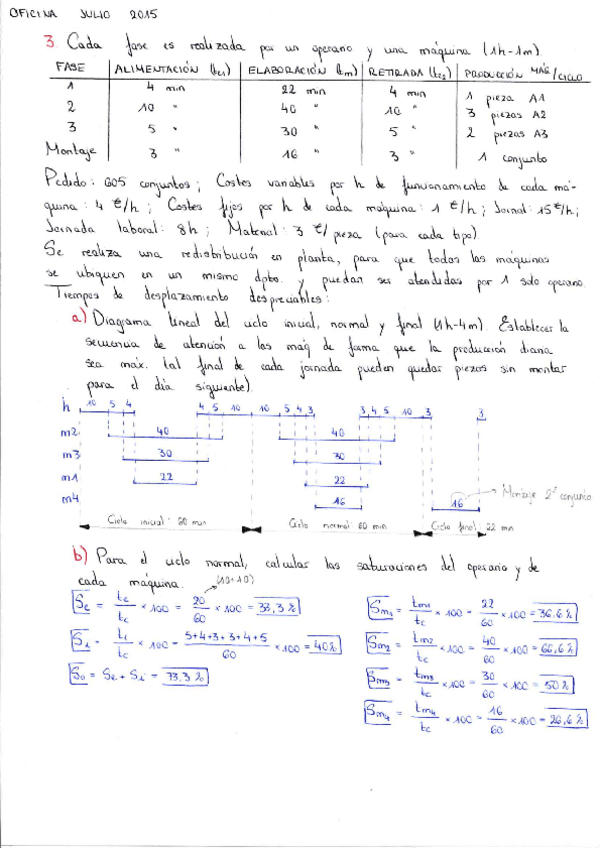 OFICINA JULIO 2015
3. Cada fase es realizada por un operario y una máquina (1h-1m).
FASE ALIMENTACIÓN (tc1) ELABORACIÓN (tm) RETIRADA (tc2) PRODUCCIÓN MÁQ/CICLO
1 4 min 22 min 4 min 1 pieza A1
2 10 " 40 " 10 " 3 piezas A2
3 5 " 30 " 5 " 2 piezas A3
Montaje 3 " 16 " 3 " 1 conjunto
Pedido: 605 conjuntos; Costes variables por h de funcionamiento de cada má-
quina: 4 €/h; Costes fijos por h de cada máquina: 1 €/h; Jornal: 15 €/h;
Jornada laboral: 8h; Material: 3 €/pieza (para cada tipo).
Se realiza una redistribución en planta, para que todas las máquinas
se ubiquen en un mismo dpto. y puedan ser atendidas por 1 solo operario.
Tiempos de desplazamiento despreciables:
a) Diagrama lineal del ciclo inicial, normal y final (1h-4m). Establecer la
secuencia de atención a las máq de forma que la producción diaria
sea máx. (al final de cada jornada pueden quedar piezas sin montar
para el día siguiente).
h 10 5 4 4 5 10 10 5 4 3 3 4 5 10 3 3
m2 40 40
m3 30 30
m1 22 22
m4 16 16 Montaje 2º conjunto
Ciclo inicial: 80 min Ciclo normal: 60 min Ciclo final: 22 min
b) Para el ciclo normal, calcular las saturaciones del operario y de
cada máquina. (10+10)
Se = te/tc × 100 = 20/60 × 100 = 33,3 %
Si = ti/tc × 100 = 5+4+3+3+4+5/60 × 100 = 40%
So = Se + Si = 73,3 %
Sm1 = tm1/tc × 100 = 22/60 × 100 = 36,6 %
Sm2 = tm2/tc × 100 = 40/60 × 100 = 66,6 %
Sm3 = tm3/tc × 100 = 30/60 × 100 = 50 %
Sm4 = tm4/tc × 100 = 16/60 × 100 = 26,6 %